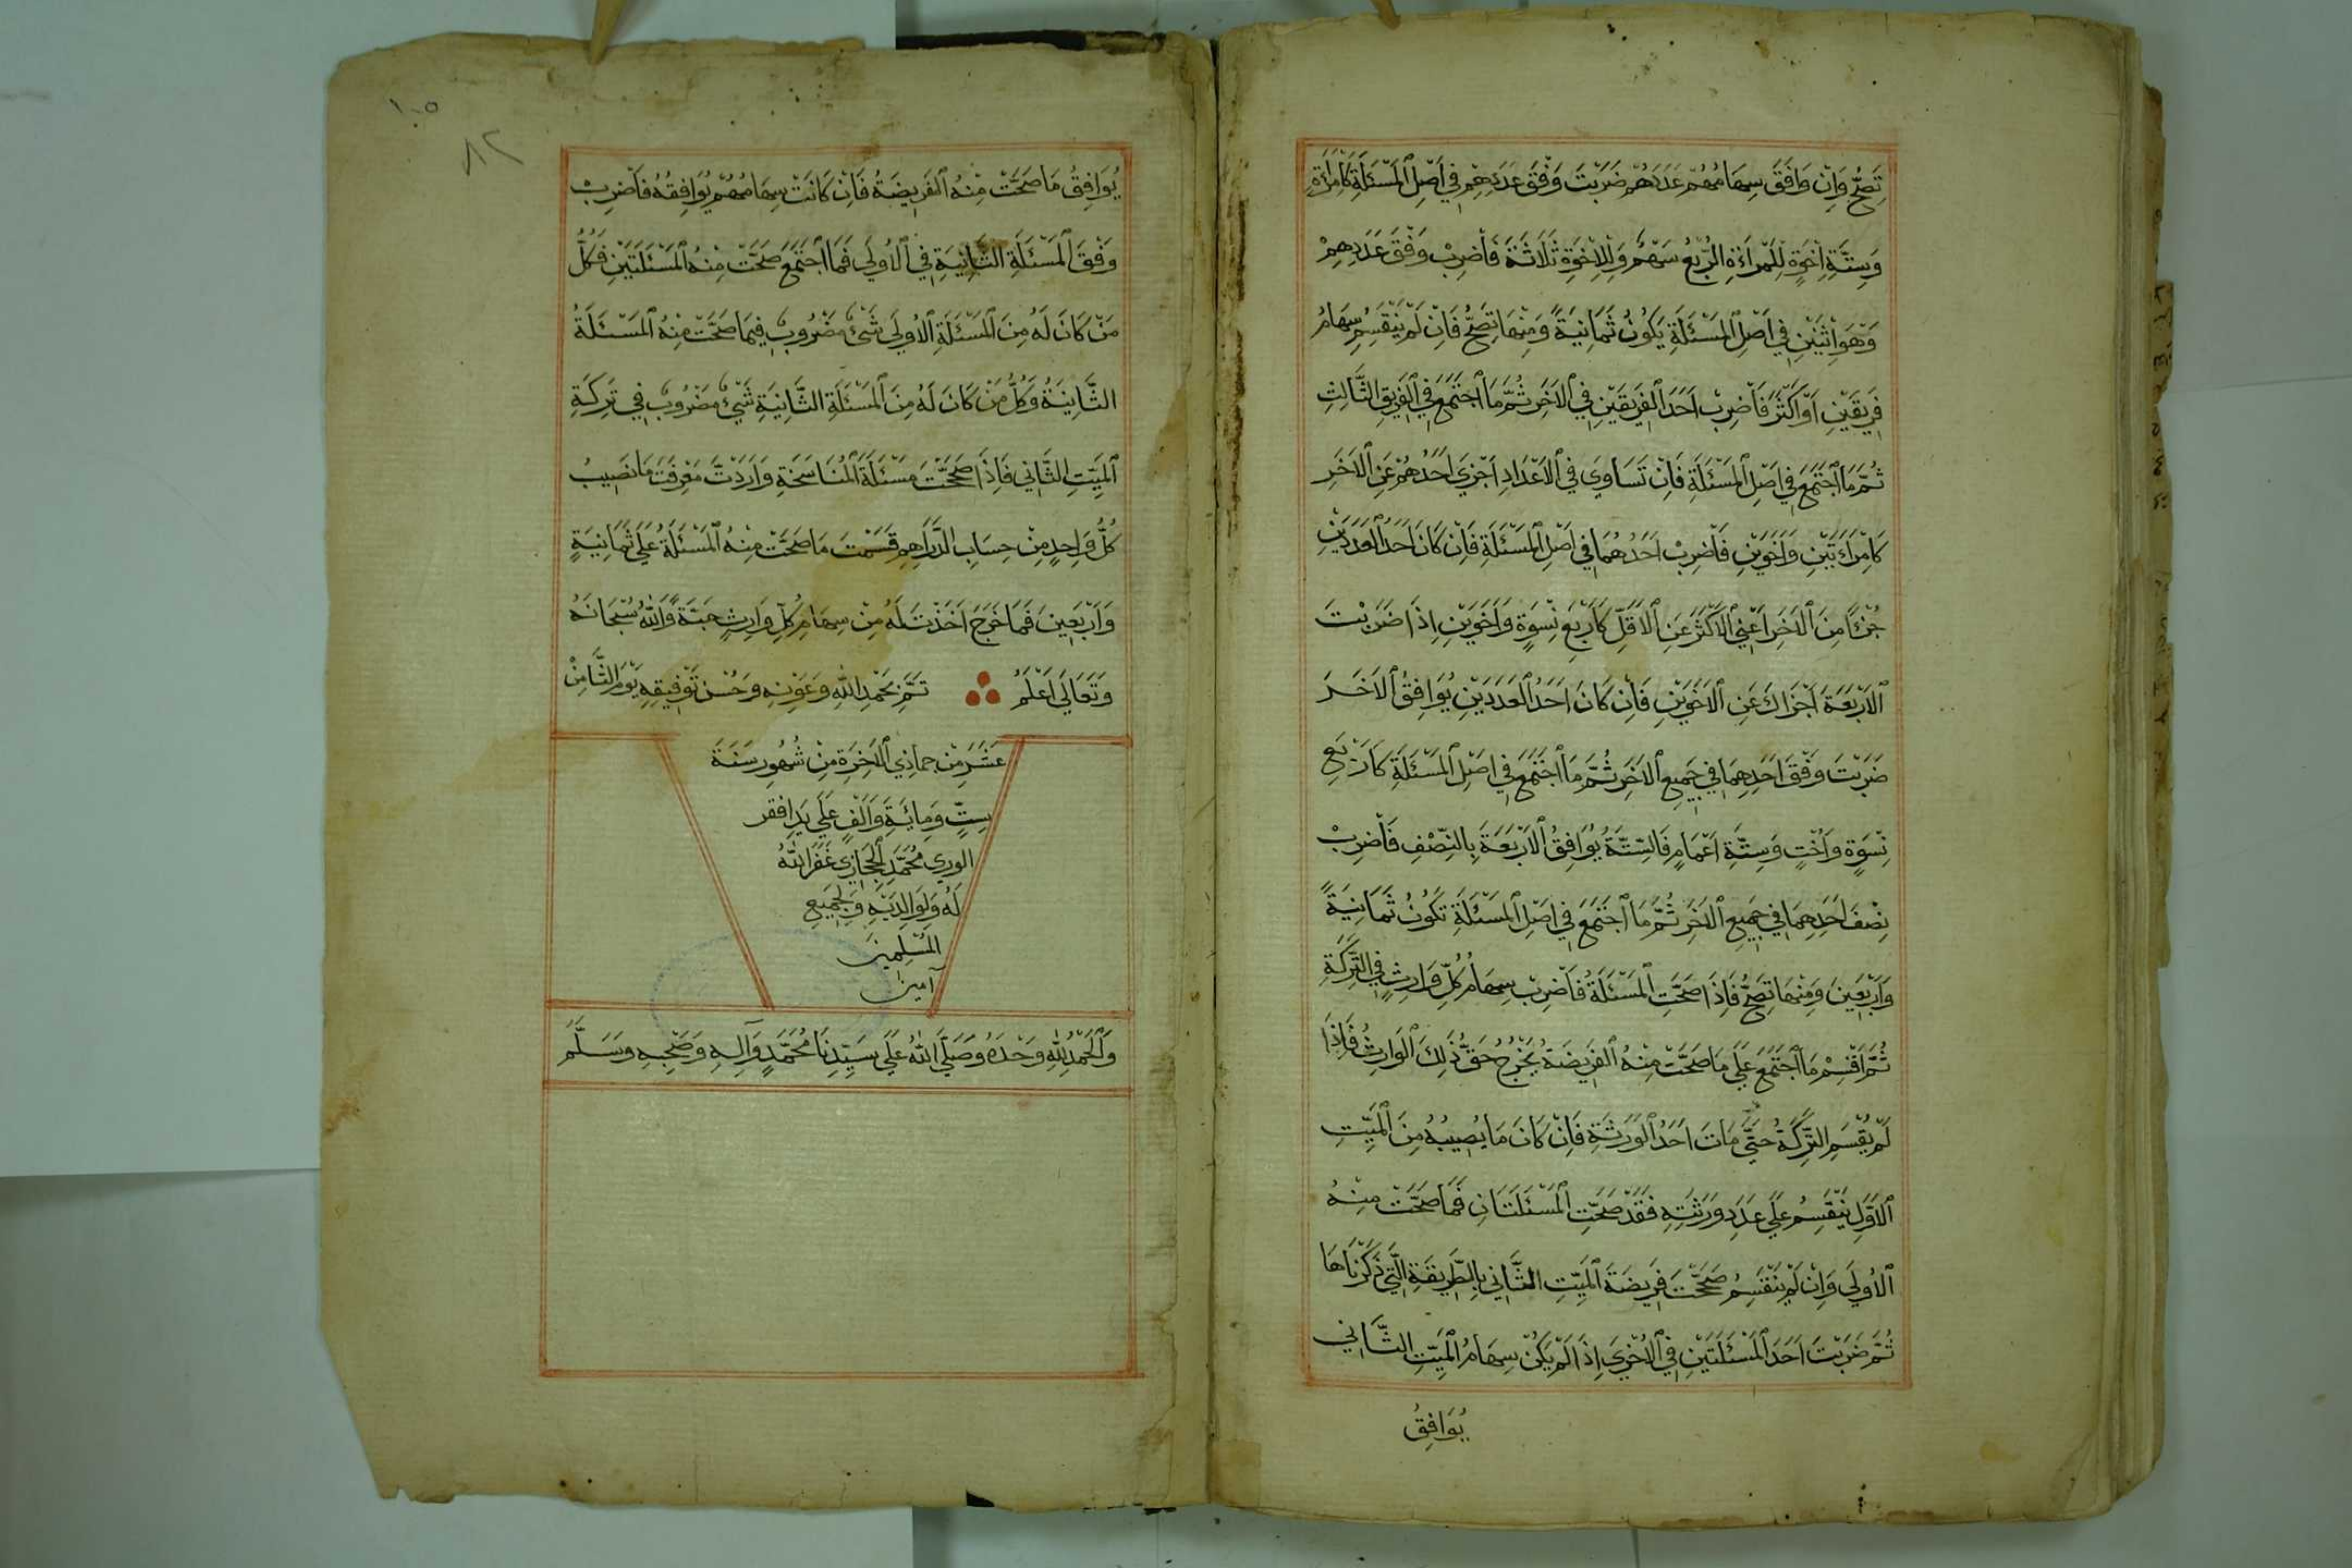 تَصِحُّ وَاِنْ وَافَقَ سِهَامُهُمْ عَدَدَهُمْ ضَرَبْتَ وَفْقَ عَدَدِهِمْ فِي اَصْلِ الْمَسْئَلَةِ كَامْرَأَةٍ
وَسِتَّةِ اِخْوَةٍ لِلْمَرْاَةِ الرُّبْعُ سَهْمٌ وَلِلْاِخْوَةِ ثَلَاثَةٌ فَاضْرِبْ وَفْقَ عَدَدِهِمْ
وَهُوَ اثْنَيْنِ فِي اَصْلِ الْمَسْئَلَةِ يَكُونُ ثَمَانِيَةً وَمِنْهَا تَصِحُّ فَاِنْ لَمْ يَنْقَسِمْ سِهَامُ
فَرِيقَيْنِ اَوْ اَكْثَرَ فَاضْرِبْ اَحَدَ الْفَرِيقَيْنِ فِي الْاٰخَرِ ثُمَّ مَا اجْتَمَعَ فِي الْفَرِيقِ الثَّالِثِ
ثُمَّ مَا اجْتَمَعَ فِي اَصْلِ الْمَسْئَلَةِ فَاِنْ تَسَاوِي فِي الْاَعْدَادِ اَجْزَي اَحَدُهُمْ عَنِ الْاٰخَرِ
كَامْرَاَتَيْنِ وَاَخَوَيْنِ فَاضْرِبْ اَحَدَهُمَا فِي اَصْلِ الْمَسْئَلَةِ فَاِنْ كَانَ اَحَدُ الْعَدَدَيْنِ
جُزْءًا مِنَ الْاٰخَرِ اَعْنِي الْاَكْثَرَ عَنِ الْاَقَلِّ كَاَرْبَعِ نِسْوَةٍ وَاَخَوَيْنِ اِذَا ضَرَبْتَ
الْاَرْبَعَةَ اَجْزَاكَ عَنِ الْاَخَوَيْنِ فَاِنْ كَانَ اَحَدُ الْعَدَدَيْنِ يُوَافِقُ الْاٰخَرَ
ضَرَبْتَ وَفْقَ اَحَدِهِمَا فِي جَمِيعِ الْاٰخَرِ ثُمَّ مَا اجْتَمَعَ فِي اَصْلِ الْمَسْئَلَةِ كَاَرْبَعِ
نِسْوَةٍ وَاُخْتٍ وَسِتَّةِ اَعْمَامٍ فَالسِّتَّةُ يُوَافِقُ الْاَرْبَعَةَ بِالنِّصْفِ فَاضْرِبْ
نِصْفَ اَحَدِهِمَا فِي جَمِيعِ الْاٰخَرِ ثُمَّ مَا اجْتَمَعَ فِي اَصْلِ الْمَسْئَلَةِ تَكُونُ ثَمَانِيَةً
وَاَرْبَعِينَ وَمِنْهَا تَصِحُّ فَاِذَا صَحَّتِ الْمَسْئَلَةُ فَاضْرِبْ سِهَامَ كُلِّ وَارِثٍ فِي التَّرِكَةِ
ثُمَّ اقْسِمْ مَا اجْتَمَعَ عَلَي مَا صَحَّتْ مِنْهُ الْفَرِيضَةُ يَخْرُجُ حَقُّ ذٰلِكَ الْوَارِثِ فَاِذَا
لَمْ يُقْسَمِ التَّرِكَةُ حَتَّي مَاتَ اَحَدُ الْوَرَثَةِ فَاِنْ كَانَ مَا يُصِيبُهُ مِنَ الْمَيِّتِ
الْاَوَّلِ يَنْقَسِمُ عَلَي عَدَدِ وَرَثَتِهِ فَقَدْ صَحَّتِ الْمَسْئَلَتَانِ فَمَا صَحَّتْ مِنْهُ
الْاُولَي وَاِنْ لَمْ يَنْقَسِمْ صَحَّحْتَ فَرِيضَةَ الْمَيِّتِ الثَّانِي بِالطَّرِيقَةِ الَّتِي ذَكَرْنَاهَا
ثُمَّ ضَرَبْتَ اَحَدَ الْمَسْئَلَتَيْنِ فِي الْاُخْرَي اِذَا لَمْ يَكُنْ سِهَامُ الْمَيِّتِ الثَّانِي
يُوَافِقُ
١٠٥
٨٢
يُوَافِقُ مَا صَحَّتْ مِنْهُ الْفَرِيضَةُ فَاِنْ كَانَتْ سِهَامُهُمْ يُوَافِقُهُ فَاضْرِبْ
وَفْقَ الْمَسْئَلَةِ الثَّانِيَةِ فِي الْاُولَي فَمَا اجْتَمَعَ صَحَّتْ مِنْهُ الْمَسْئَلَتَيْنِ فَكُلُّ
مَنْ كَانَ لَهُ مِنَ الْمَسْئَلَةِ الْاُولَي شَيْءٌ مَضْرُوبٌ فِيمَا صَحَّتْ مِنْهُ الْمَسْئَلَةُ
الثَّانِيَةُ وَكُلُّ مَنْ كَانَ لَهُ مِنَ الْمَسْئَلَةِ الثَّانِيَةِ شَيْءٌ مَضْرُوبٌ فِي تَرِكَةِ
الْمَيِّتِ الثَّانِي فَاِذَا صَحَّحْتَ مَسْئَلَةَ الْمُنَاسَخَةِ وَارَدْتَ مَعْرِفَتَ مَا نَصِيبُ
كُلُّ وَاحِدٍ مِنْ حِسَابِ الدَّرَاهِمِ قَسَمْتَ مَا صَحَّتْ مِنْهُ الْمَسْئَلَةُ عَلَي ثَمَانِيَةٍ
وَاَرْبَعِينَ فَمَا خَرَجَ اَخَذْتَ لَهُ مِنْ سِهَامِ كُلِّ وَارِثٍ حَبَّةً وَاللّٰهُ سُبْحَانَهُ
وَتَعَالَي اَعْلَمُ تَمَّ بِحَمْدِ اللّٰهِ وَعَوْنِهِ وَحُسْنِ تَوْفِيقِهِ يَوْمَ الثَّامِنْ
عَشَرَ مِنْ جماذِي الْاٰخِرَةِ مِنْ شُهُورِ سَنَةَ
سِتٍّ وَمِائَةَ وَاَلْفٍ عَلَي يَدِ افقر
الوري مُحَمَّدِ الْحِجَازِي غَفَرَ اللّٰهُ
لَهُ وَلِوَالِدَيْهِ وَلِجَمِيعِ
الْمُسْلِمِينَ
آمين
وَالْحَمْدُ لِلّٰهِ وَحْدَهُ وَصَلَّي اللّٰهُ عَلَي سَيِّدِنَا مُحَمَّدٍ وَآلِهِ وَصَحْبِهِ وَسَلَّمَ